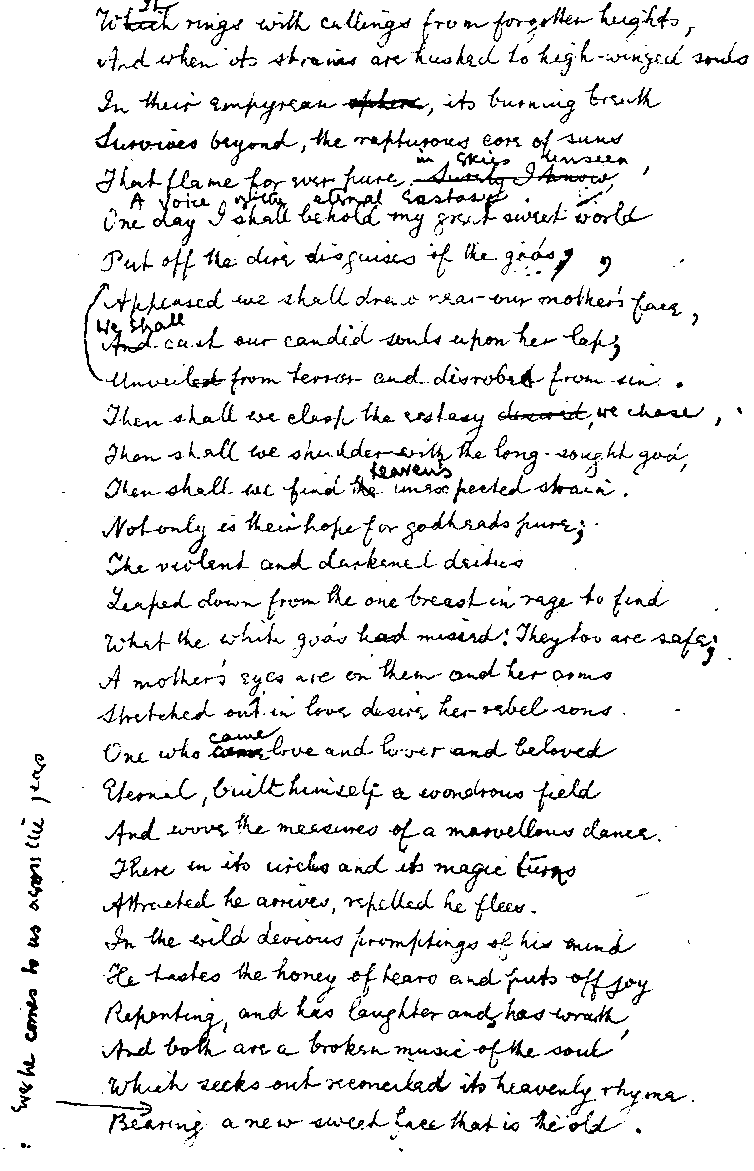 It
Which rings with callings from forgotten heights,
And when its strains are hushed to high-winged souls
In their empyrean sphere, its burning breath
Survives beyond, the rapturous core of suns
in skies unseen
That flame for ever pure, Surely I know,
A voice of the eternal Ecstasy.
One day I shall behold my great sweet world
Put off the dire disguises of the gods,
Appeased we shall draw near our mother's face,
We shall
And cast our candid souls upon her lap;
Unveiled from terror and disrobed from sin.
Then shall we clasp the ecstasy desired, we chase,
Then shall we shudder with the long-sought god,
heaven's
Then shall we find the unexpected strain.
Not only is their hope for godheads pure;
The violent and darkened deities
Leaped down from the one breast in rage to find
What the white gods had missed: They too are safe;
A mother's eyes are on them and her arms
Stretched out in love desire her rebel sons.
came
One who love and lover and beloved
Eternal, built himself a wondrous field
And wove the measures of a marvellous dance.
There in its circles and its magic turns
Attracted he arrives, repelled he flees.
In the wild devious promptings of his mind
He tastes the honey of tears and puts off joy
Repenting, and has laughter and has wrath,
And both are a broken music of the soul
Which seeks out reconciled its heavenly rhyme.
Ever he comes to us across the years
Bearing a new sweet face that is the old.